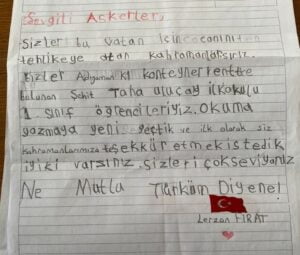 Sevgili Askerler,
Sizler bu vatan için canınızı
tehlikeye atan kahramanlarsınız.
Bizler Adıyaman K1 konteyner kentte
bulunan Şehit Taha Uluçay ilkokulu
1. sınıf öğrencileriyiz. Okuma
yazmaya yeni geçtik ve ilk olarak siz
kahramanlarımıza teşekkür etmek istedik
iyiki varsınız. Sizleri çok seviyoruz
Ne Mutlu Türküm Diyene!
Lerzan FIRAT